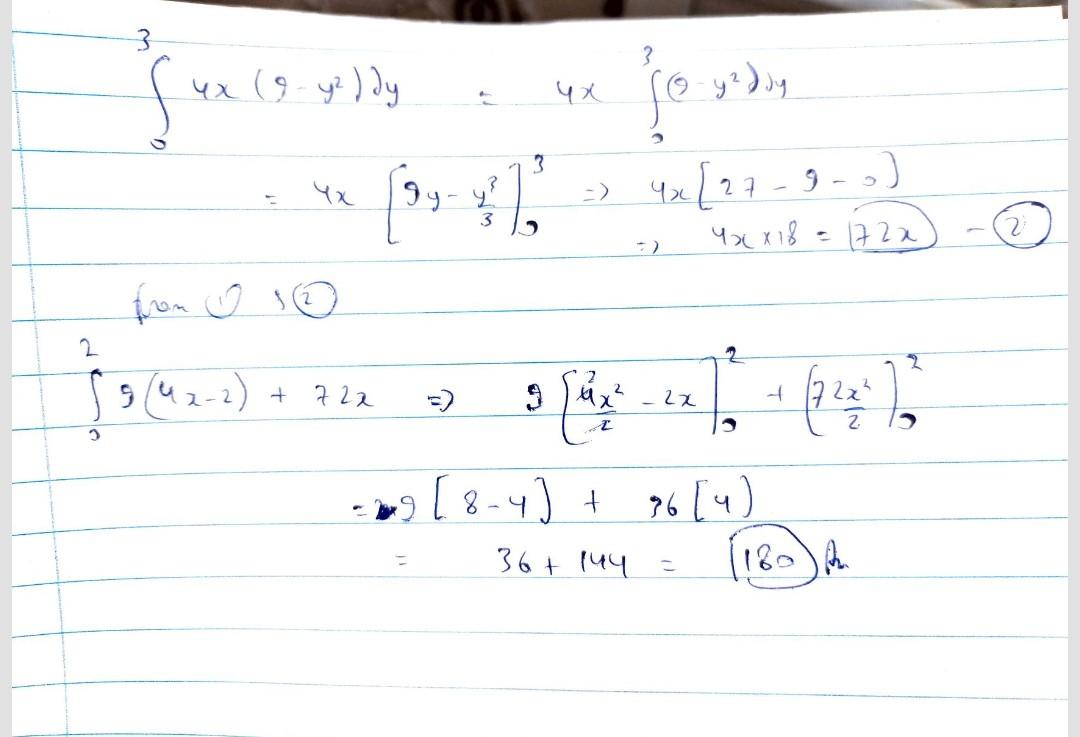 ∫₀³ 4x (9 - y²) dy = 4x ∫₀³ (9 - y²) dy
= 4x [9y - y³/3]₀³ => 4x [27 - 9 - 0]
=> 4x × 18 = 72x - ②
from ① & ②
∫₀² 9(4x-2) + 72x => 9 [4x²/2 - 2x]₀² + [72x²/2]₀²
= 9 [8-4] + 36 [4]
= 36 + 144 = 180